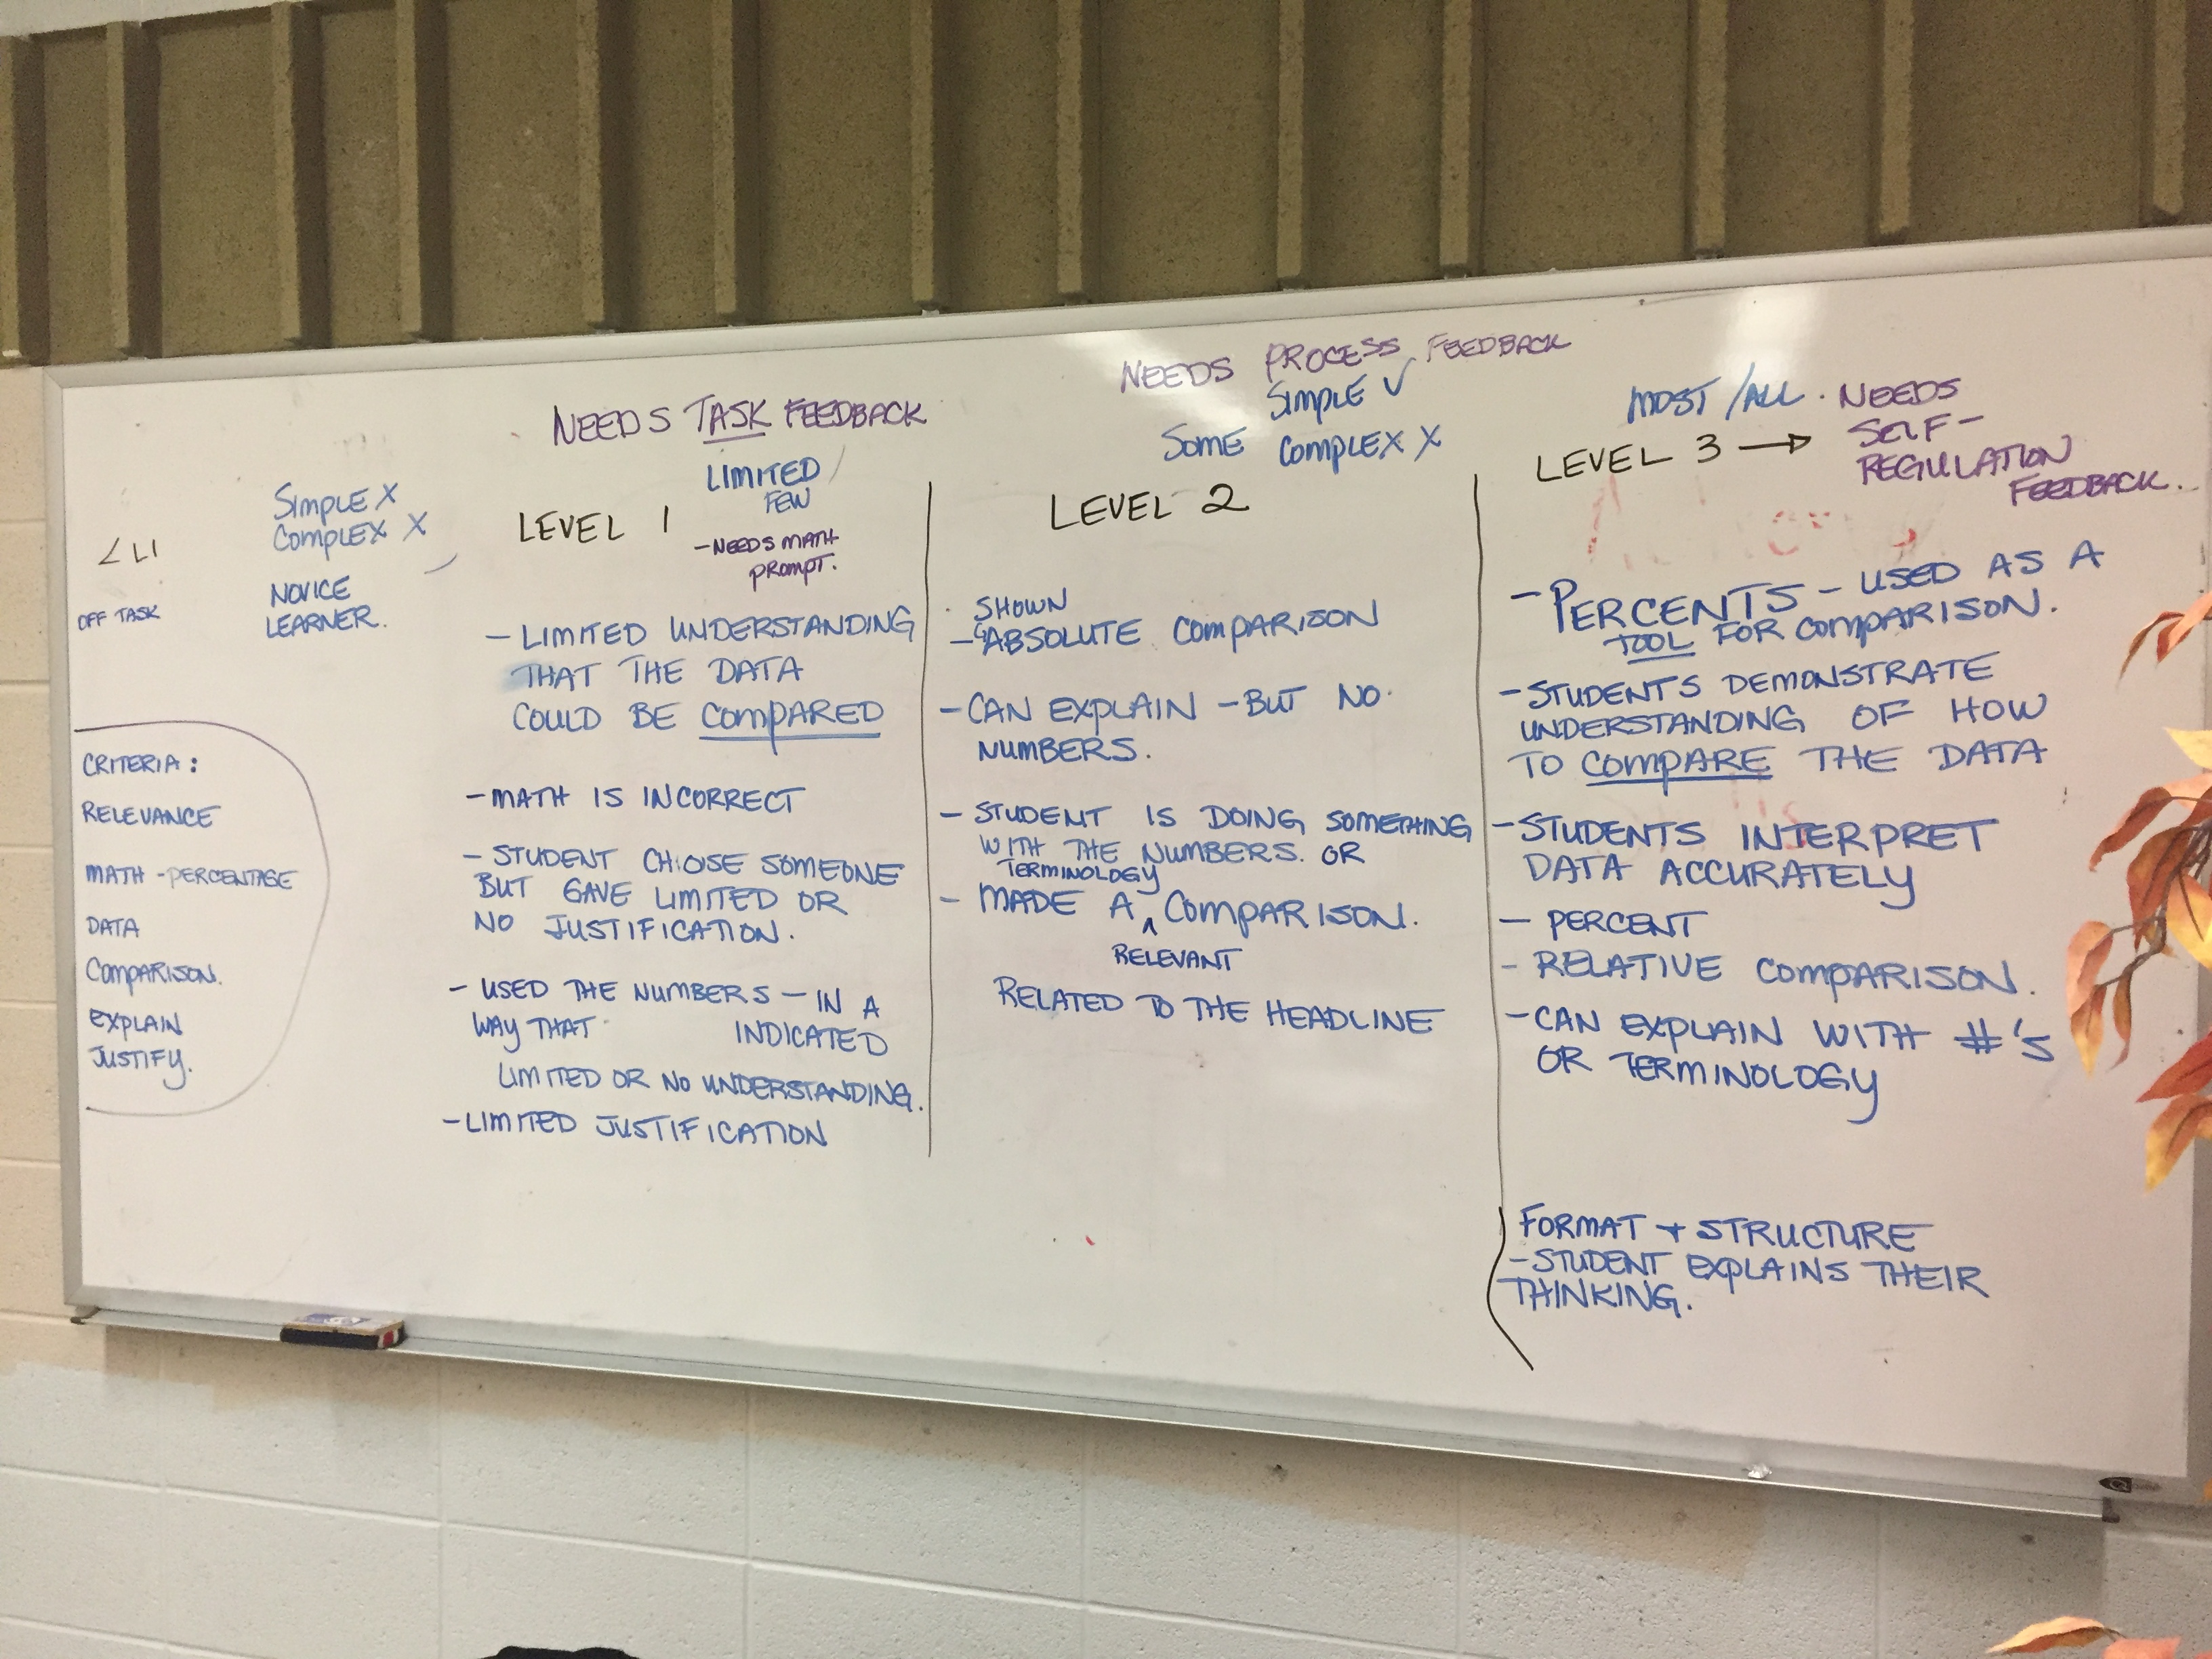 < L1
OFF TASK
SIMPLE X
COMPLEX X
NOVICE
LEARNER.
CRITERIA:
RELEVANCE
MATH - PERCENTAGE
DATA
COMPARISON.
EXPLAIN
JUSTIFY.
NEEDS TASK FEEDBACK
LIMITED
FEW
LEVEL 1
- NEEDS MATH
PROMPT.
- LIMITED UNDERSTANDING
THAT THE DATA
COULD BE COMPARED
- MATH IS INCORRECT
- STUDENT CHOSE SOMEONE
BUT GAVE LIMITED OR
NO JUSTIFICATION.
- USED THE NUMBERS - IN A
WAY THAT INDICATED
LIMITED OR NO UNDERSTANDING.
- LIMITED JUSTIFICATION
NEEDS PROCESS FEEDBACK
SIMPLE ✓
SOME COMPLEX X
LEVEL 2
SHOWN
- ABSOLUTE COMPARISON
- CAN EXPLAIN - BUT NO
NUMBERS.
- STUDENT IS DOING SOMETHING
WITH THE NUMBERS. OR
TERMINOLOGY
- MADE A ^ COMPARISON.
RELEVANT
RELATED TO THE HEADLINE
MOST / ALL . NEEDS
SELF-
LEVEL 3 → REGULATION
FEEDBACK.
- PERCENTS - USED AS A
TOOL FOR COMPARISON.
- STUDENTS DEMONSTRATE
UNDERSTANDING OF HOW
TO COMPARE THE DATA
- STUDENTS INTERPRET
DATA ACCURATELY
- PERCENT
- RELATIVE COMPARISON.
- CAN EXPLAIN WITH #'S
OR TERMINOLOGY
FORMAT + STRUCTURE
- STUDENT EXPLAINS THEIR
THINKING.